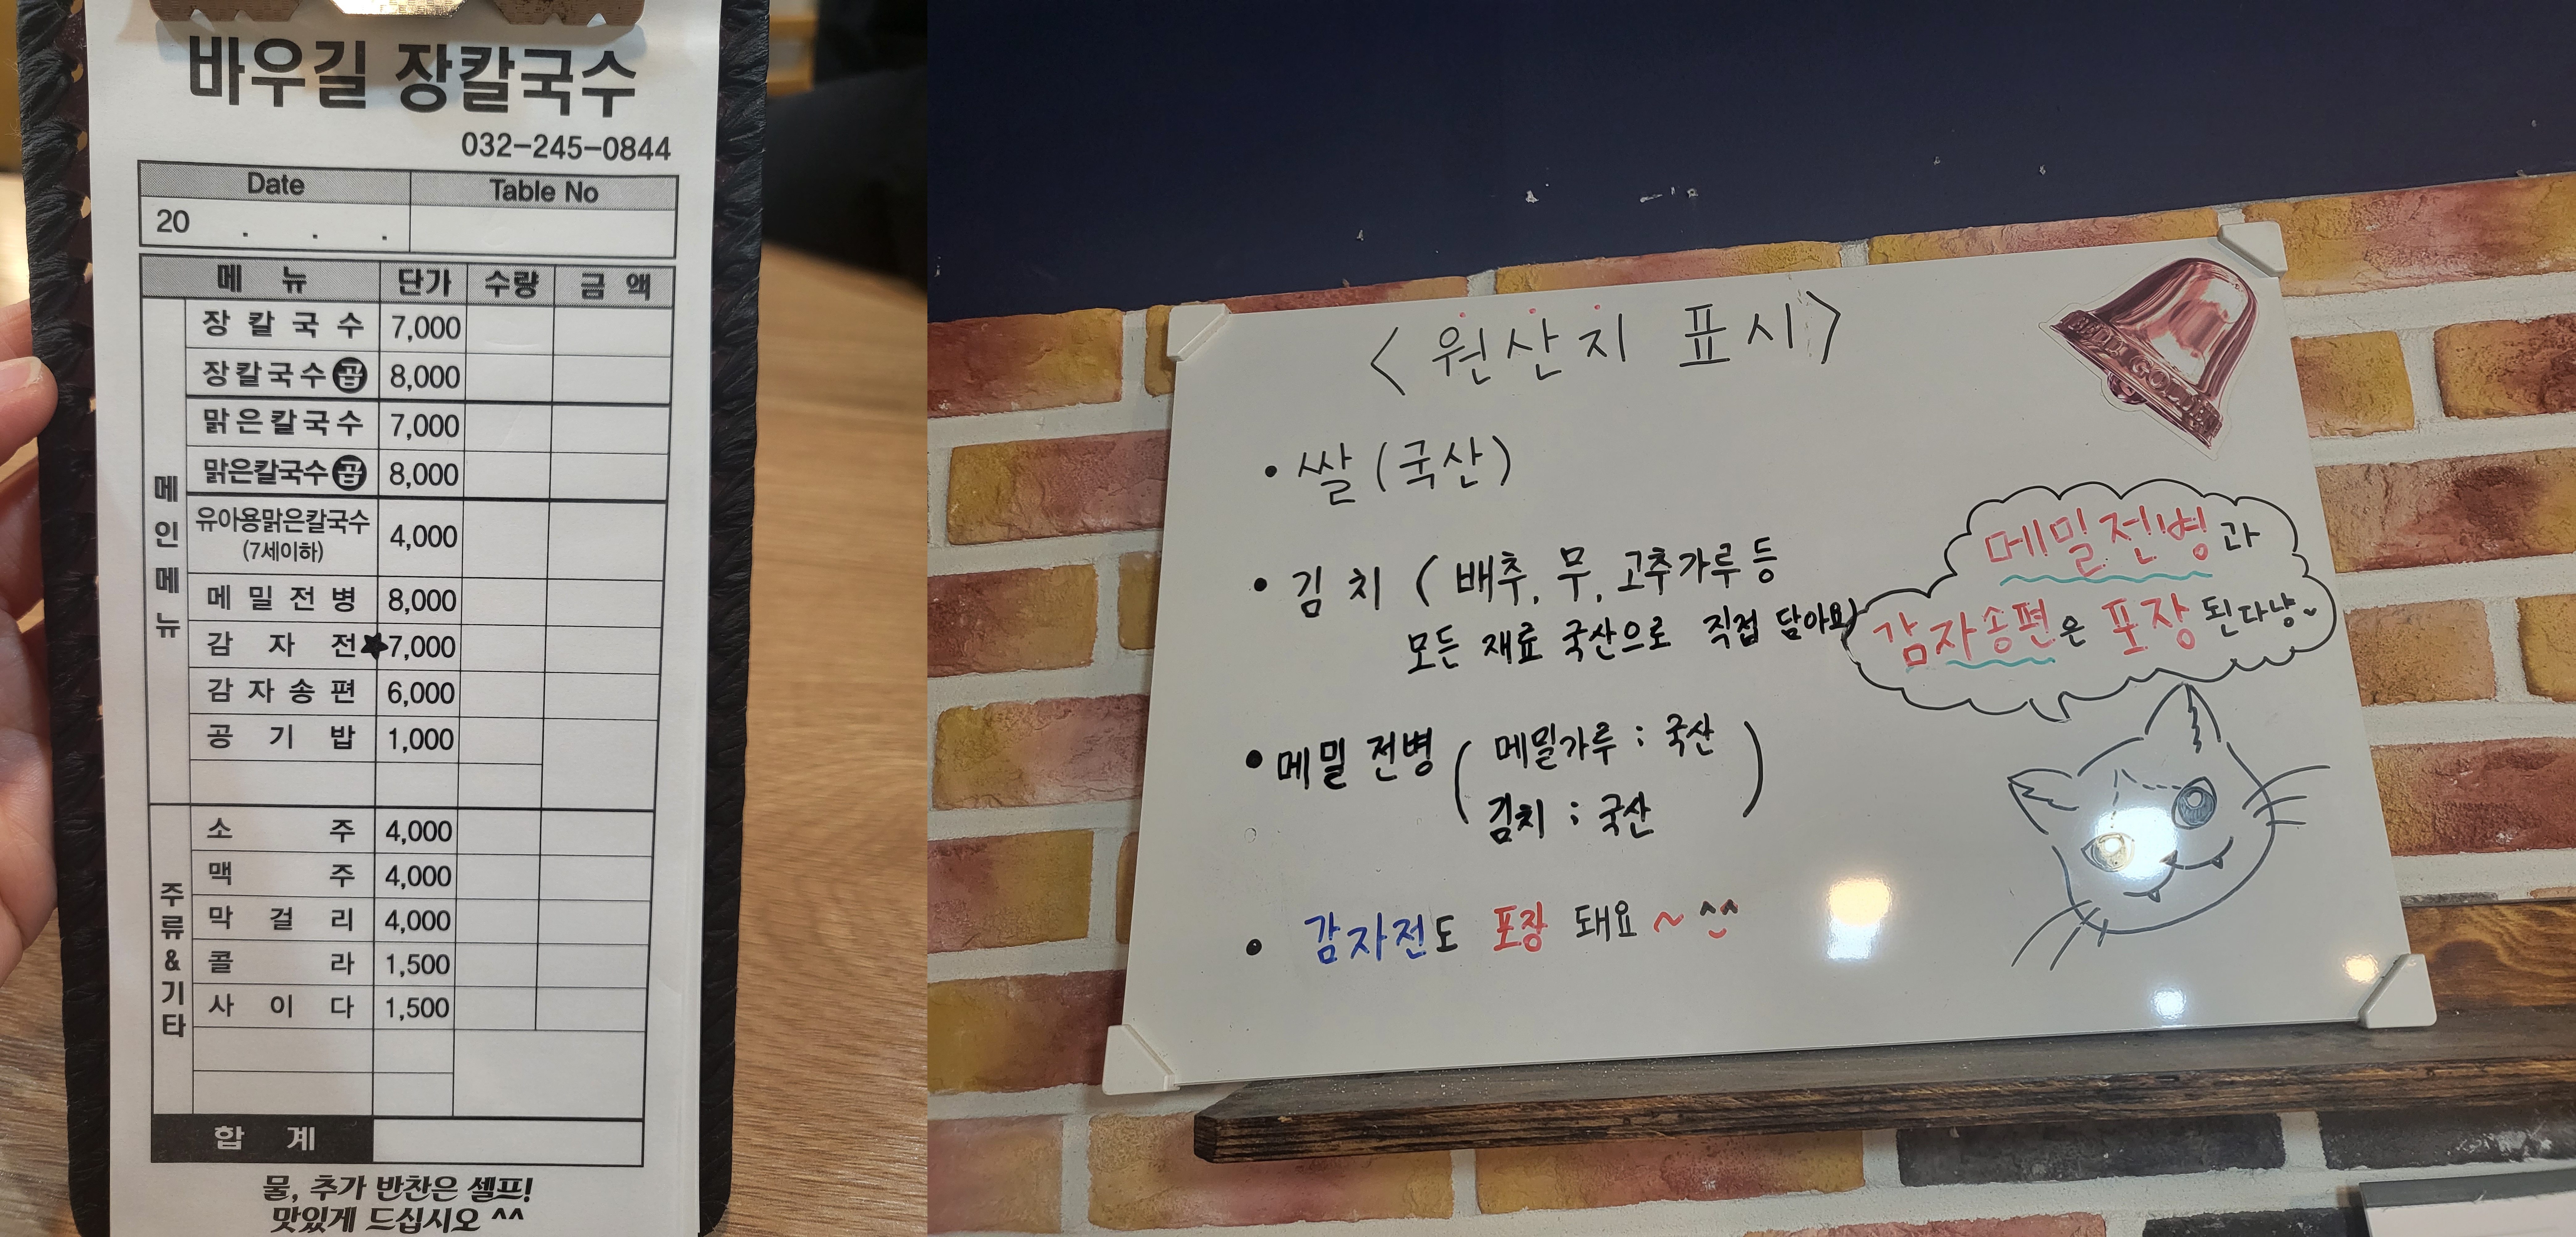 바우길 장칼국수
032-245-0844
Date Table No
20 . . .
메 뉴 단가 수량 금 액
메인메뉴
장 칼 국 수 7,000
장칼국수 곱 8,000
맑은칼국수 7,000
맑은칼국수 곱 8,000
유아용맑은칼국수
(7세이하) 4,000
메 밀 전 병 8,000
감 자 전 ★7,000
감 자 송 편 6,000
공 기 밥 1,000
주류&기타
소 주 4,000
맥 주 4,000
막 걸 리 4,000
콜 라 1,500
사 이 다 1,500
합 계
물, 추가 반찬은 셀프!
맛있게 드십시오 ^^
<원산지 표시>
• 쌀 (국산)
• 김치 ( 배추, 무, 고추가루 등
모든 재료 국산으로 직접 담아요)
• 메밀 전병 ( 메밀가루 : 국산
김치 : 국산 )
• 감자전도 포장 돼요 ~ ^^
메밀전병과
감자송편은 포장 된다냥~